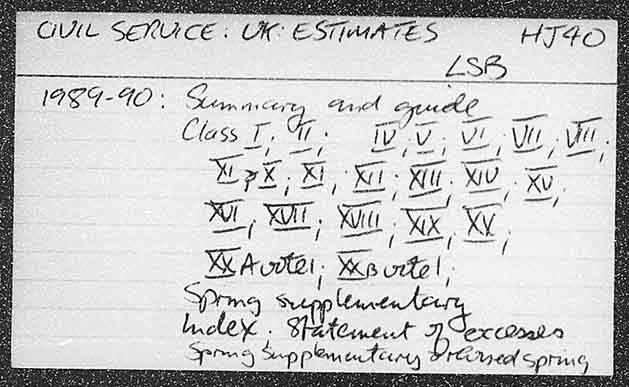 CIVIL SERVICE: UK: ESTIMATES HJ40
LSB
1989-90: Summary and guide
Class I; II; IV; V; VI; VII; VIII;
XI; X; XI; XII; XIII; XIV; XV;
XVI; XVII; XVIII; XIX; XV;
XXA vote 1; XXB vote 1;
Spring supplementary
Index. Statement of excesses
Spring Supplementary revised spring